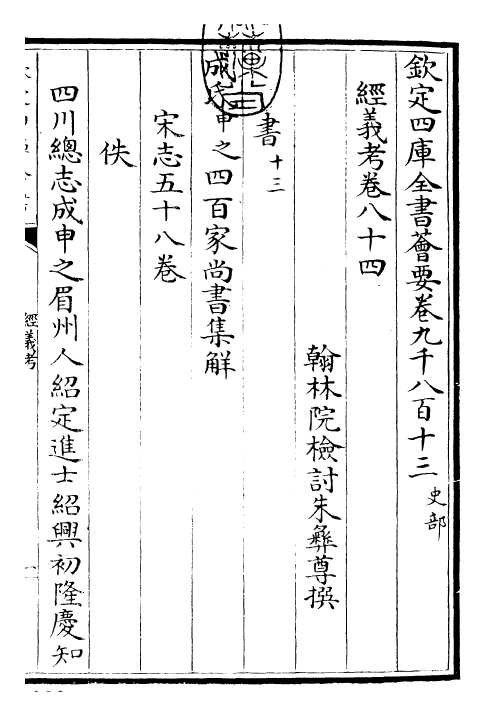 欽定四庫全書薈要卷九千八百十三 史部
經義考卷八十四
翰林院檢討朱彝尊撰
書十三
成氏申之四百家尚書集解
宋志五十八卷
佚
四川總志成申之眉州人紹定進士紹興初隆慶知
經義考